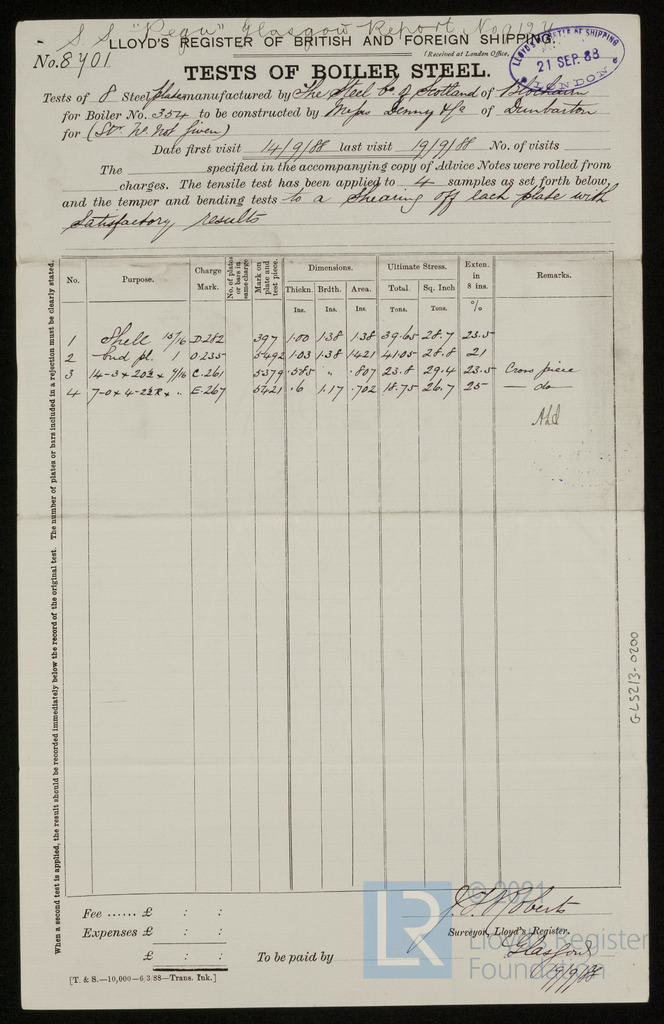 S.S. "Pegu" Glasgow Report No 9124
LLOYD'S REGISTER OF BRITISH AND FOREIGN SHIPPING.
No. 8701
(Received at London Office,
LLOYD'S REGISTER OF SHIPPING
21 SEP. 88
LONDON
TESTS OF BOILER STEEL.
Tests of 8 Steel plates manufactured by The Steel Co of Scotland of Blochairn
for Boiler No. 354 to be constructed by Messrs Denny & Co of Dunbarton
for (Str No not given)
Date first visit 14/9/88 last visit 19/9/88 No. of visits
The specified in the accompanying copy of Advice Notes were rolled from
charges. The tensile test has been applied to 4 samples as set forth below,
and the temper and bending tests to a shearing off each plate with
satisfactory results
No. Purpose. Charge Mark. No. of plates or bars in same charge Mark on plate and test piece. Dimensions. Ultimate Stress. Exten. in 8 ins. Remarks.
Thickn. Brdth. Area. Total. Sq. Inch
Ins. Ins. Ins. Tons. Tons. %
1 Shell 15/16 D.282 397 1.00 1.38 1.38 39.65 28.7 23.5
2 End pl. 1 O.235 5492 1.03 1.38 1.421 41.05 28.8 21
3 14-3 x 20½ x 9/16 C.261 5379 .585 " .807 23.8 29.4 23.5 Cross piece
4 7-0 x 4-2½R x " E.267 5421 .6 1.17 .702 18.75 26.7 25 — do —
When a second test is applied, the result should be recorded immediately below the record of the original test. The number of plates or bars included in a rejection must be clearly stated.
GLS213-0200
Fee ...... £ : :
Expenses £ : :
£ : :
To be paid by
J. T. Roberts
Surveyor, Lloyd's Register.
Glasgow
19/9/88
[T. & S.—10,000—6/3/88—Trans. Ink.]
LR
© 2021
Lloyd's Register
Foundation